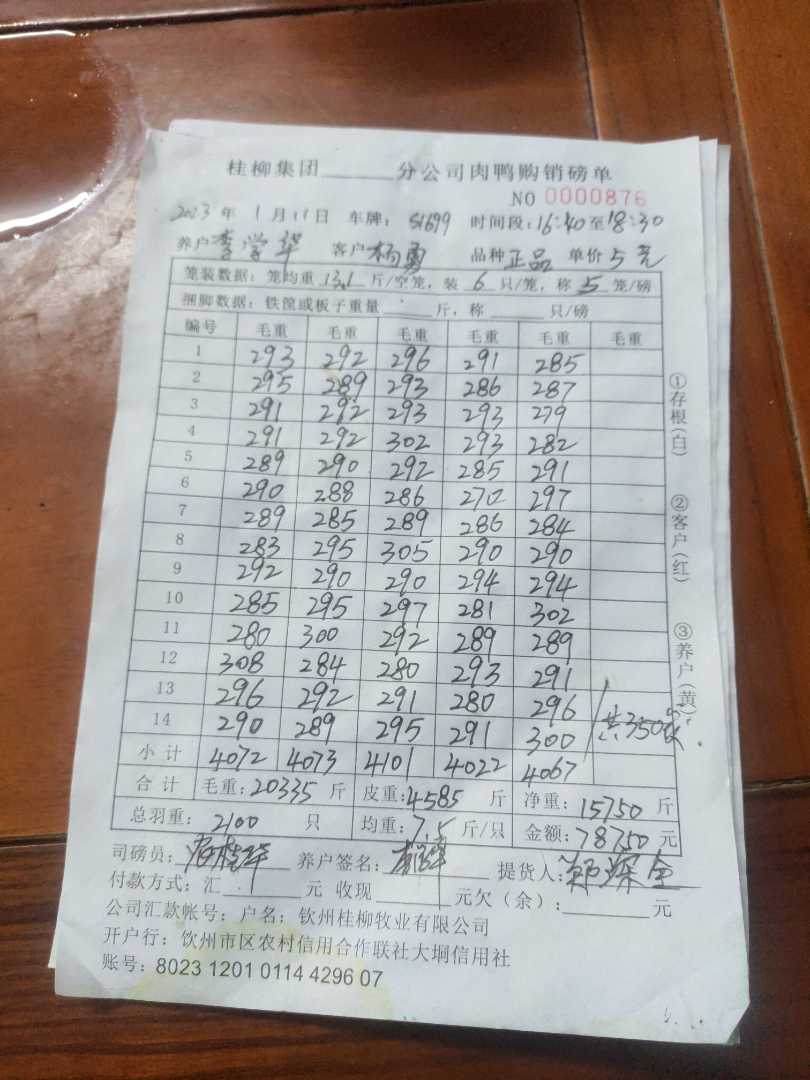 桂柳集团______分公司肉鸭购销磅单
NO 0000876
2023年 1月11日 车牌: S1699 时间段:16:40至18:30
养户李学华 客户杨勇 品种正品 单价5元
笼装数据: 笼均重 13.1 斤/空笼, 装 6 只/笼, 称 5 笼/磅
捆脚数据: 铁筐或板子重量______斤, 称______只/磅
编号 毛重 毛重 毛重 毛重 毛重 毛重
1 293 292 296 291 285
2 295 289 293 286 287
3 291 292 293 293 279
4 291 292 302 293 282
5 289 290 292 285 291
6 290 288 286 270 297
7 289 285 289 286 284
8 283 295 305 290 290
9 292 290 290 294 294
10 285 295 297 281 302
11 280 300 292 289 289
12 308 284 280 293 291
13 296 292 291 280 296
14 290 289 295 291 300
共350
小计 4072 4073 4101 4022 4067
合计 毛重:20335 斤 皮重:4585 斤 净重:15750 斤
总羽重: 2100 只 均重:7.5 斤/只 金额:78750 元
司磅员: 养户签名: 提货人:
付款方式:汇______元 收现______元欠(余):______元
公司汇款帐号: 户名: 钦州桂柳牧业有限公司
开户行: 钦州市区农村信用合作联社大垌信用社
账号: 8023 1201 0114 4296 07
①存根(白) ②客户(红) ③养户(黄)